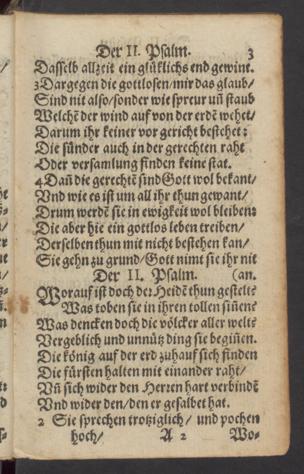 Der II. Psalm. 3
Dasselb allzeit ein glüklichs end gewint.
3 Dargegen die gottlosen/mir das glaub/
Sind nit also/sonder wie spreur uñ staub
Welchẽ der wind auf von der erdẽ wehet/
Darum ihr keiner vor gericht bestehet:
Die sünder auch in der gerechten raht
Oder versamlung finden keine stat.
4. Dañ die gerechtẽ sind Gott wol bekant/
Vnd wie es ist um all ihr thun gewant/
Drum werdẽ sie in ewigkeit wol bleiben:
Die aber hie ein gottlos leben treiben/
Derselben thun mit nicht bestehen kan/
Sie gehn zu grund/Gott nimt sie ihr nit
Der II. Psalm. (an.
Worauf ist doch der Heidẽ thun gestelt?
Was toben sie in ihren tollen siñen?
Was dencken doch die völcker aller welt?
Vergeblich und unnütz ding sie begiñen.
Die könig auf der erd zuhauf sich finden
Die fürsten halten mit einander raht/
Vñ sich wider den Herren hart verbindẽ
Vnd wider den/den er gesalbet hat.
2 Sie sprechen trotziglich/ und pochen
hoch/ A 2 Wo-